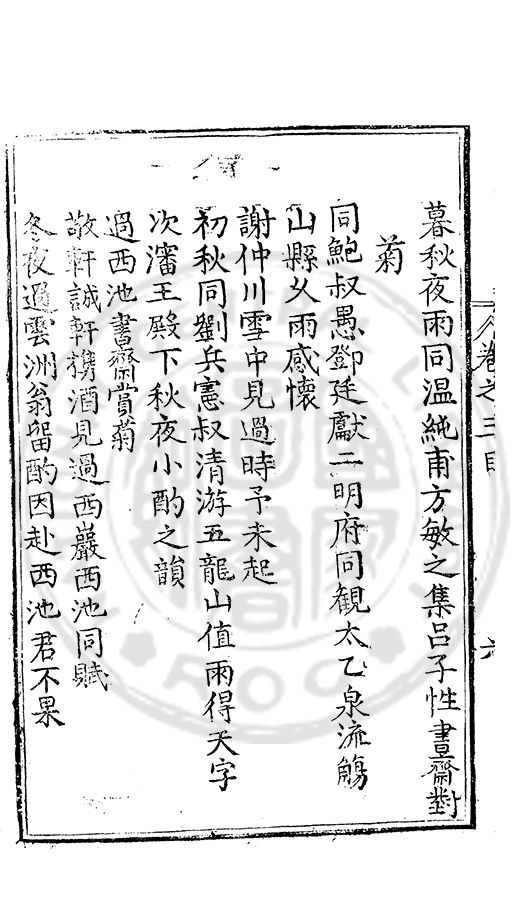 暮秋夜雨同温純甫方敏之集吕子性書齋對
菊
同鮑叔愚鄧廷獻二明府同觀太乙泉流觴
山縣久雨感懷
謝仲川雪中見過時予未起
初秋同劉兵憲叔清游五龍山值雨得天字
次瀋王殿下秋夜小酌之韻
過西池書齋賞菊
敬軒誠軒携酒見過西巖西池同賦
冬夜過雲洲翁留酌因赴西池君不果
卷之三目
六